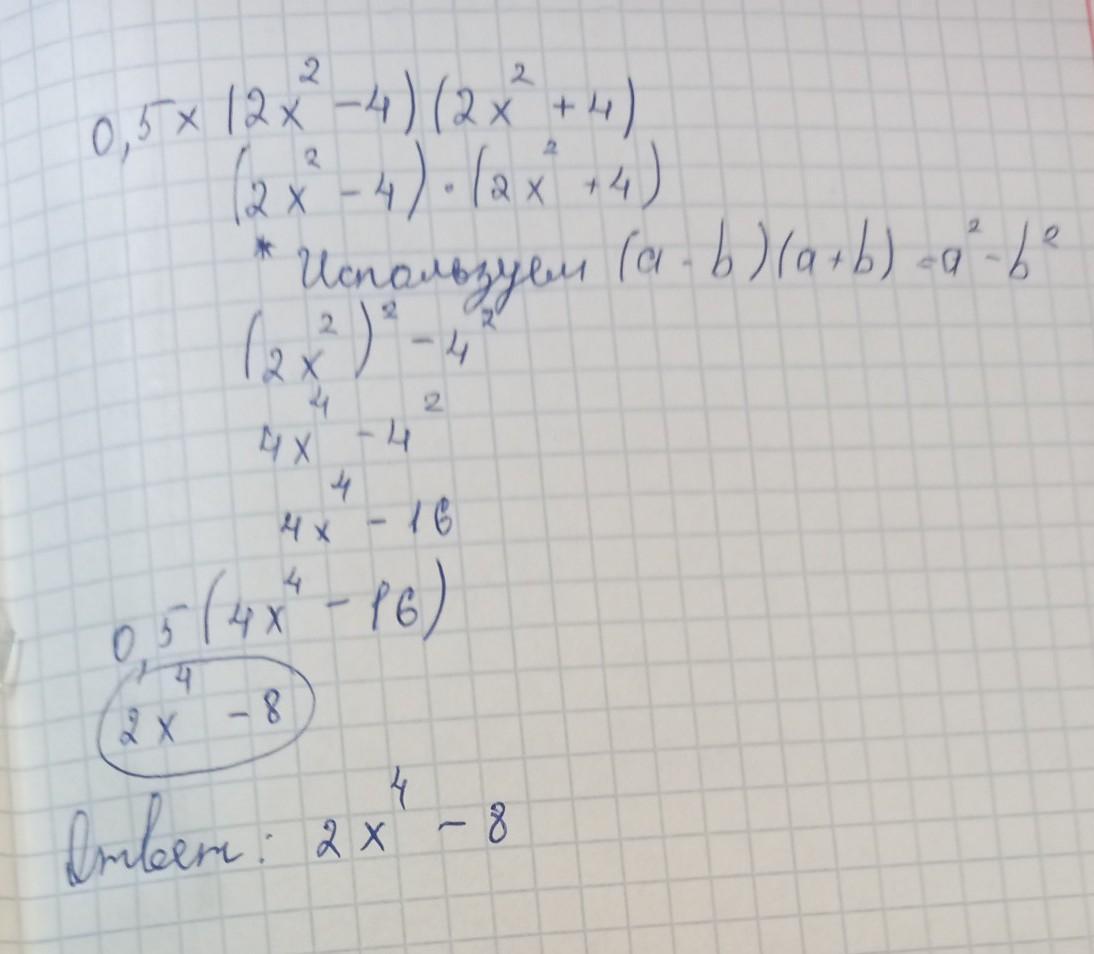 0,5x (2x² - 4) (2x² + 4)
(2x² - 4) · (2x² + 4)
* Используем (a - b)(a + b) = a² - b²
(2x²)² - 4²
4x⁴ - 4²
4x⁴ - 16
0,5 (4x⁴ - 16)
2x⁴ - 8
Ответ: 2x⁴ - 8